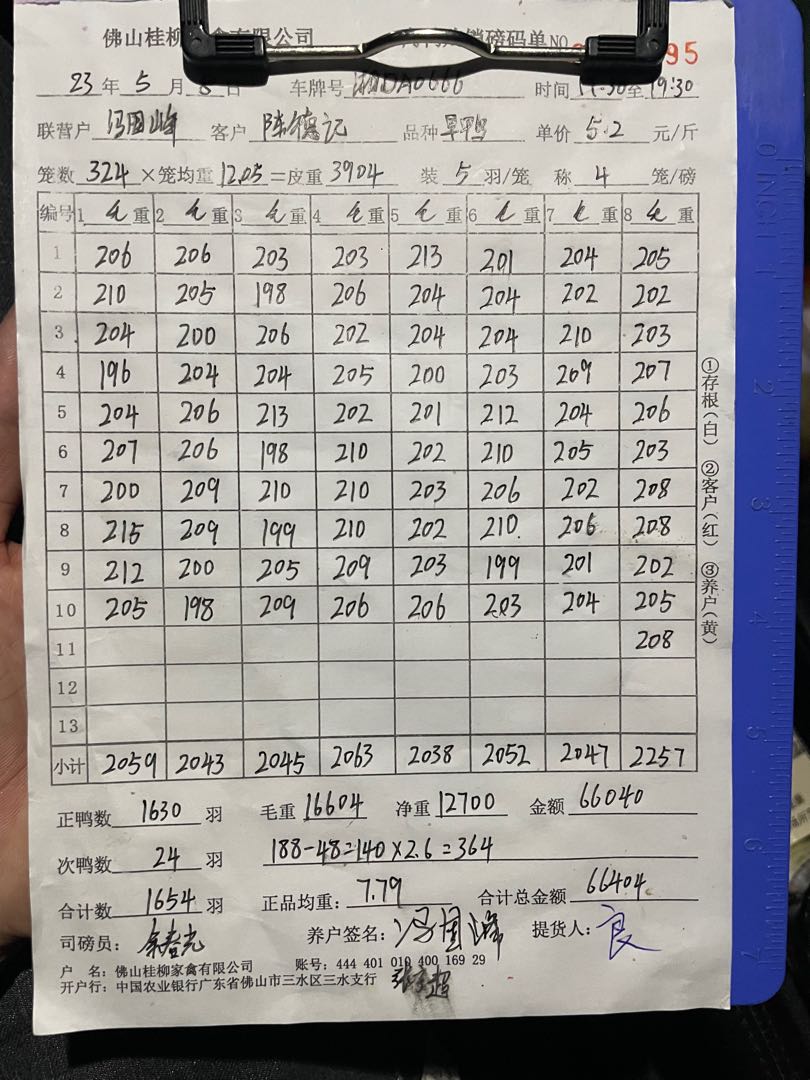 佛山桂柳家禽有限公司 销磅码单NO 95
23 年 5 月 8 日 车牌号 湘DA0666 时间 17:30至19:30
联营户 冯国峰 客户 陈德记 品种 旱鸭 单价 5.2 元/斤
笼数 324 ×笼均重 12.05 =皮重 3904 装 5 羽/笼 称 4 笼/磅
编号 1 毛 重 2 毛 重 3 毛 重 4 毛 重 5 毛 重 6 毛 重 7 毛 重 8 毛 重
1 206 206 203 203 213 201 204 205
2 210 205 198 206 204 204 202 202
3 204 200 206 202 204 204 210 203
4 196 204 204 205 200 203 209 207
5 204 206 213 202 201 212 204 206
6 207 206 198 210 202 210 205 203
7 200 209 210 210 203 206 202 208
8 215 209 199 210 202 210 206 208
9 212 200 205 209 203 199 201 202
10 205 198 209 206 206 203 204 205
11 208
12
13
小计 2059 2043 2045 2063 2038 2052 2047 2257
①存根(白) ②客户(红) ③养户(黄)
正鸭数 1630 羽 毛重 16604 净重 12700 金额 66040
次鸭数 24 羽 188-48=140×2.6=364
合计数 1654 羽 正品均重: 7.79 合计总金额 66404
司磅员: 养户签名: 冯国峰 提货人: 良
户 名: 佛山桂柳家禽有限公司 账号: 444 401 010 400 169 29
开户行: 中国农业银行广东省佛山市三水区三水支行